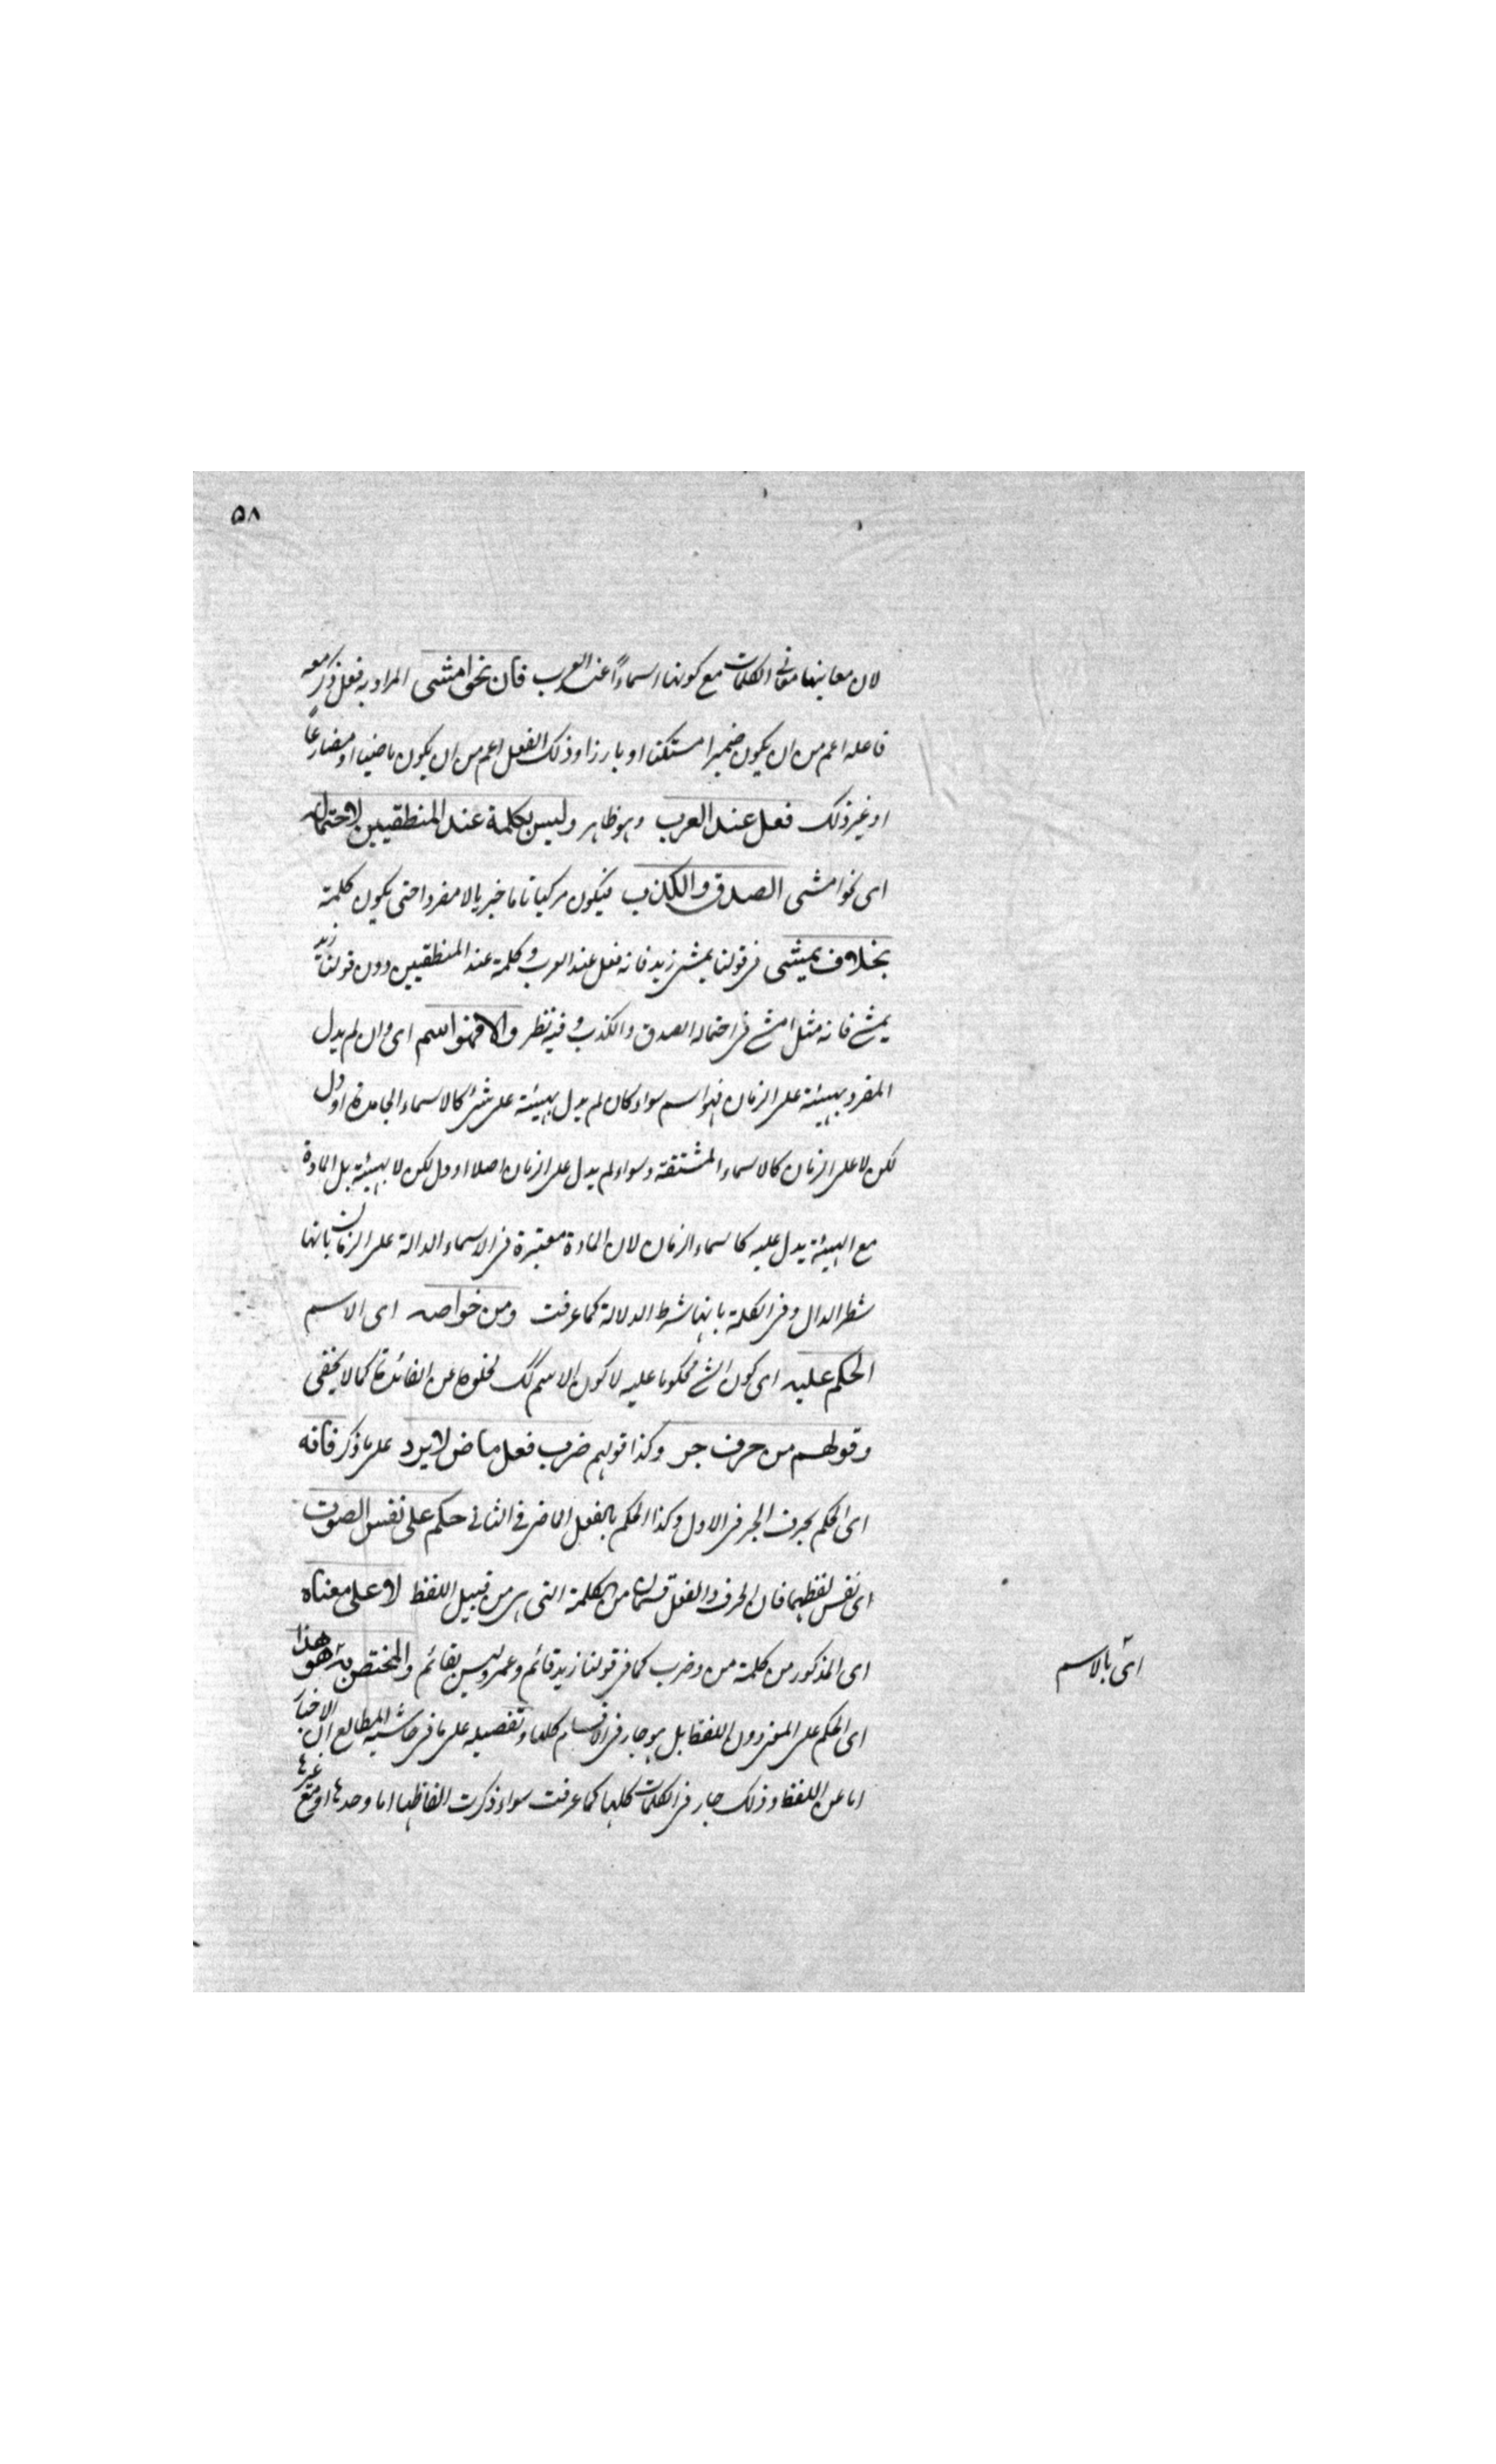 ۵۸
لان معانيها معانى الكلمات مع كونها اسماءً عند العرب فان نحو امشى المراد به فعل ذكر معه
فاعله اعم من ان يكون ضميرا مستكنا او بارزا وذلك الفعل اعم من ان يكون ماضيا او مضارعاً
او غير ذلك فعل عند العرب وهو ظاهر وليس بكلمة عند المنطقيين لاحتماله
اى نحو امشى الصدق والكذب فيكون مركبا تاما خبريا لا مفردا حتى يكون كلمة
بخلاف يمشى فى قولنا يمشى زيد فانه فعل عند العرب وكلمة عند المنطقيين دون قولنا زيد
يمشى فانه مثل امشى فى احتماله الصدق والكذب وفيه نظر والا فهو اسم اى وان لم يدل
المفرد بهيئته على الزمان فهو اسم سواء كان لم يدل بهيئته على شئ كالاسماء الجامدة او دل
لكن لا على الزمان كالاسماء المشتقة وسواء لم يدل على الزمان اصلا او دل لكن لا بهيئته بل المادة
مع الهيئة يدل عليه كاسماء الزمان لان المادة معتبرة فى الاسماء الدالة على الزمان بانها
شطر الدال وفى الكلمة بانها شرط الدلالة كما عرفت ومن خواصه اى الاسم
الحكم عليه اى كون الشئ محكوما عليه لا كون الاسم كك لخلوه عن الفائدة كما لا يخفى
وقولهم من حرف جر وكذا قولهم ضرب فعل ماض لا يرد على ما ذكر فانه
اى الحكم بحرف الجر فى الاول وكذا الحكم بالفعل الماضى فى الثانى حكم على نفس الصوت
اى نفس لفظهما فان الحرف والفعل قسمان من الكلمة التى هى من قبيل اللفظ لا على معناه
اى المذكور من كلمة من وضرب كما فى قولنا زيد قائم وعمرو ليس بقائم والمختص به هو هذا
اى بالاسم
اى الحكم على المعنى دون اللفظ بل هو جار فى الاقسام كلها وتفصيله على ما فى حاشية المطالع ان الاخبار
اما عن اللفظ وذلك جار فى الكلمات كلها كما عرفت سواء ذكرت الفاظها اما وحدها او مع غيرها